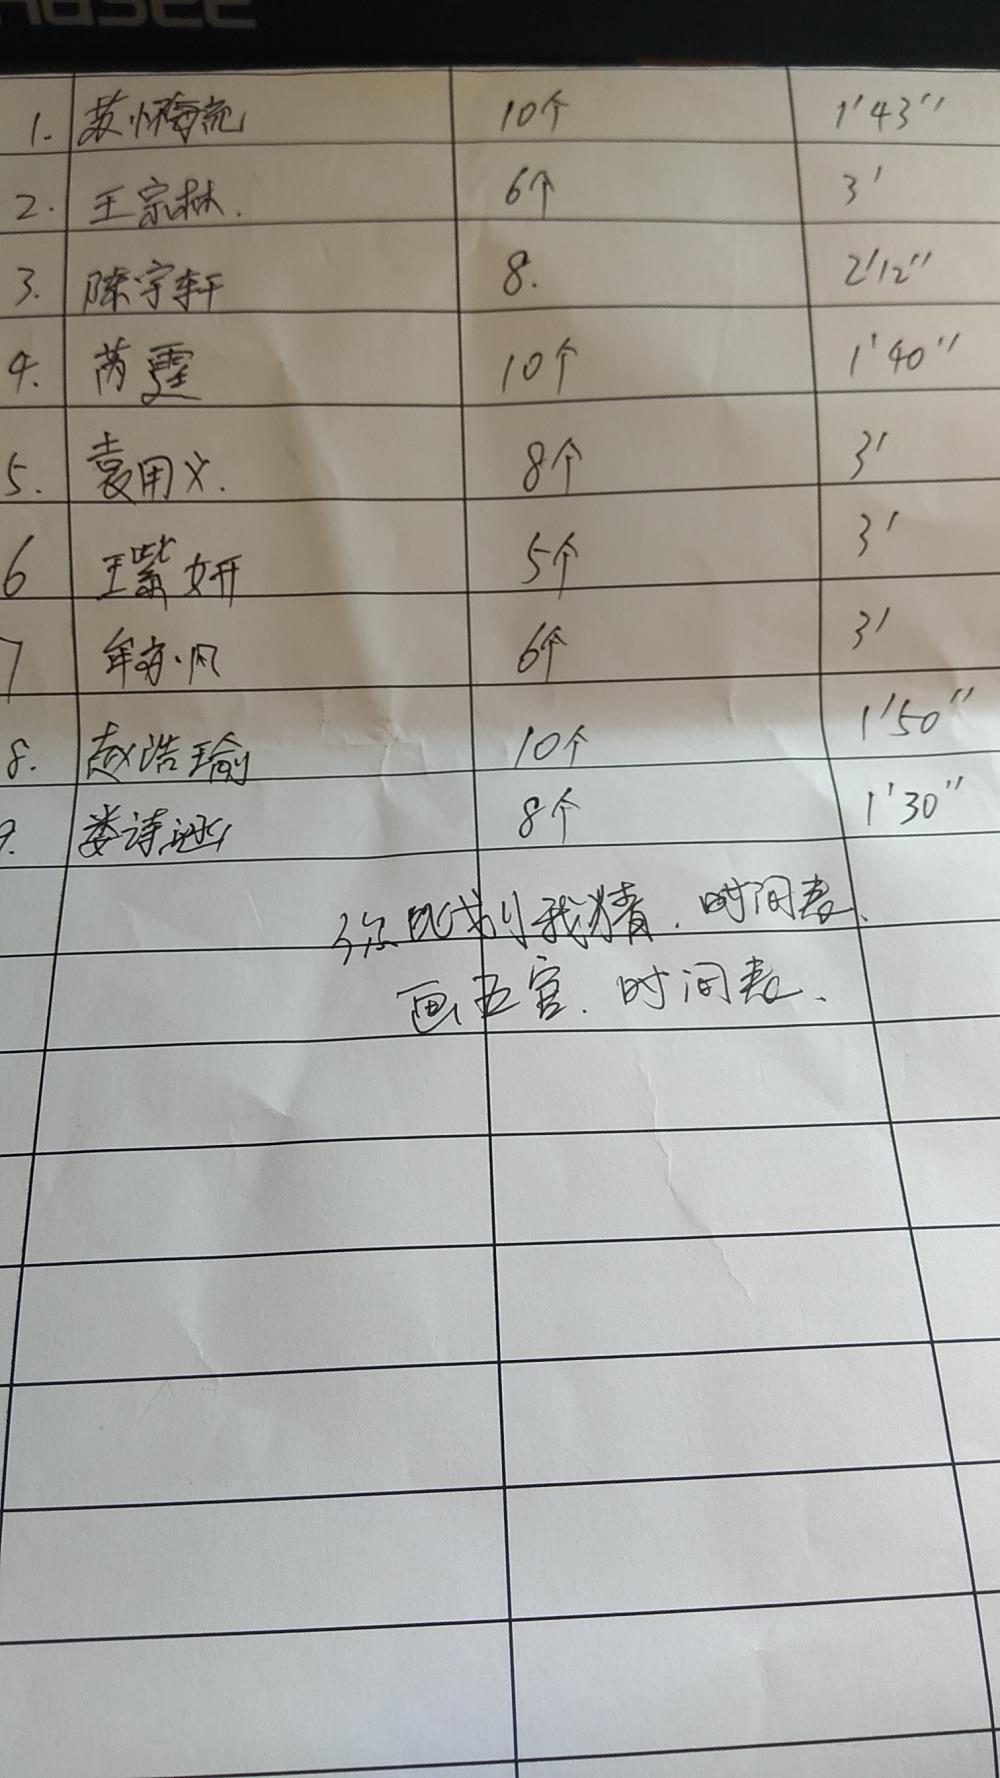 Hasee
1. 苏怀 10个 1'43"
2. 王宗林. 6个 3'
3. 陈宇轩 8. 2'12"
4. 芮霆 10个 1'40"
5. 袁用义. 8个 3'
6 王紫妍 5个 3'
7 6个 3'
8. 赵浩瑜 10个 1'50"
9. 娄诗涵 8个 1'30"
你比划我猜. 时间表.
画五官. 时间表.